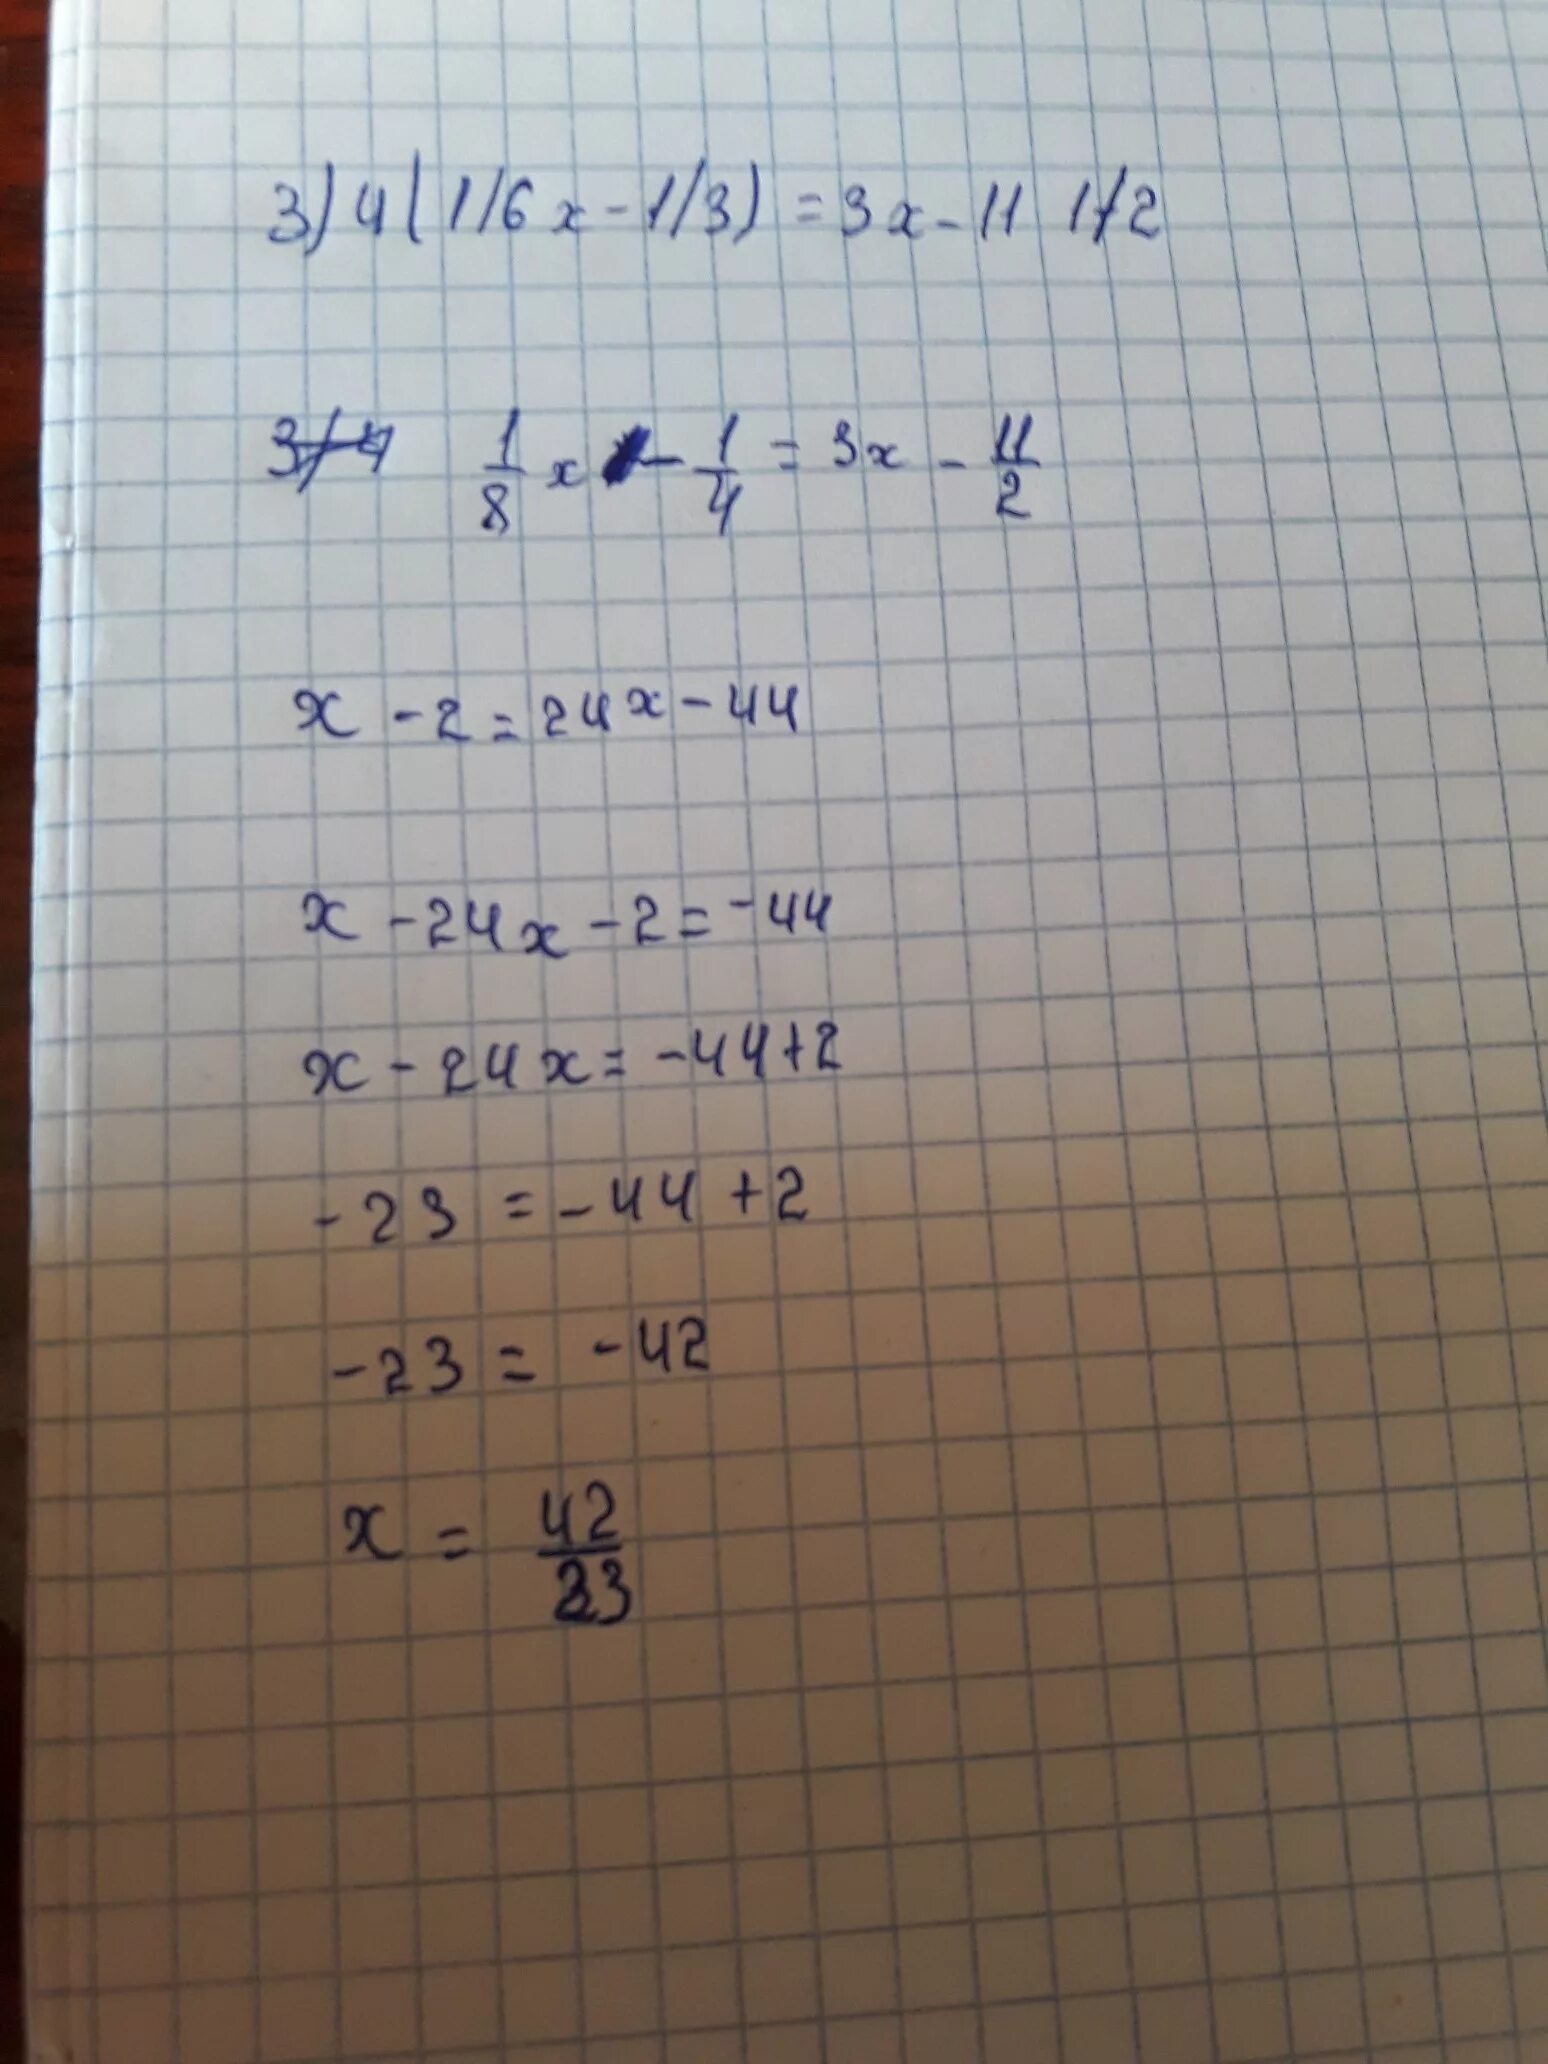 3) 4(1/6x-1/3) = 3x-11 1/2
3/4 1/8 x - 1/4 = 3x - 11/2
x - 2 = 24x - 44
x - 24x - 2 = -44
x - 24x = -44+2
-23 = -44 + 2
-23 = -42
x = 42/23